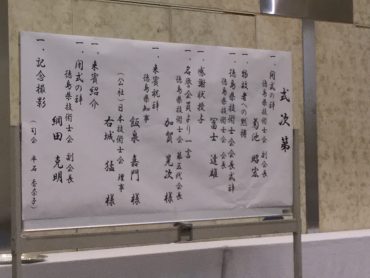 式次第
一、開式の辞
徳島県技術士会 副会長
菊池 昭宏
一、物故者への黙祷
一、徳島県技術士会会長式辞
徳島県技術士会 会長
冨士 達雄
一、感謝状授与
一、名誉会員より一言
徳島県技術士会 第五代会長
加賀 晃次 様
一、来賓祝辞
徳島県知事
飯泉 嘉門 様
(公社)日本技術士会 理事
右城 猛 様
一、来賓紹介
一、閉式の辞
徳島県技術士会 副会長
綱田 克明
一、記念撮影
(司会 平石 香奈子)